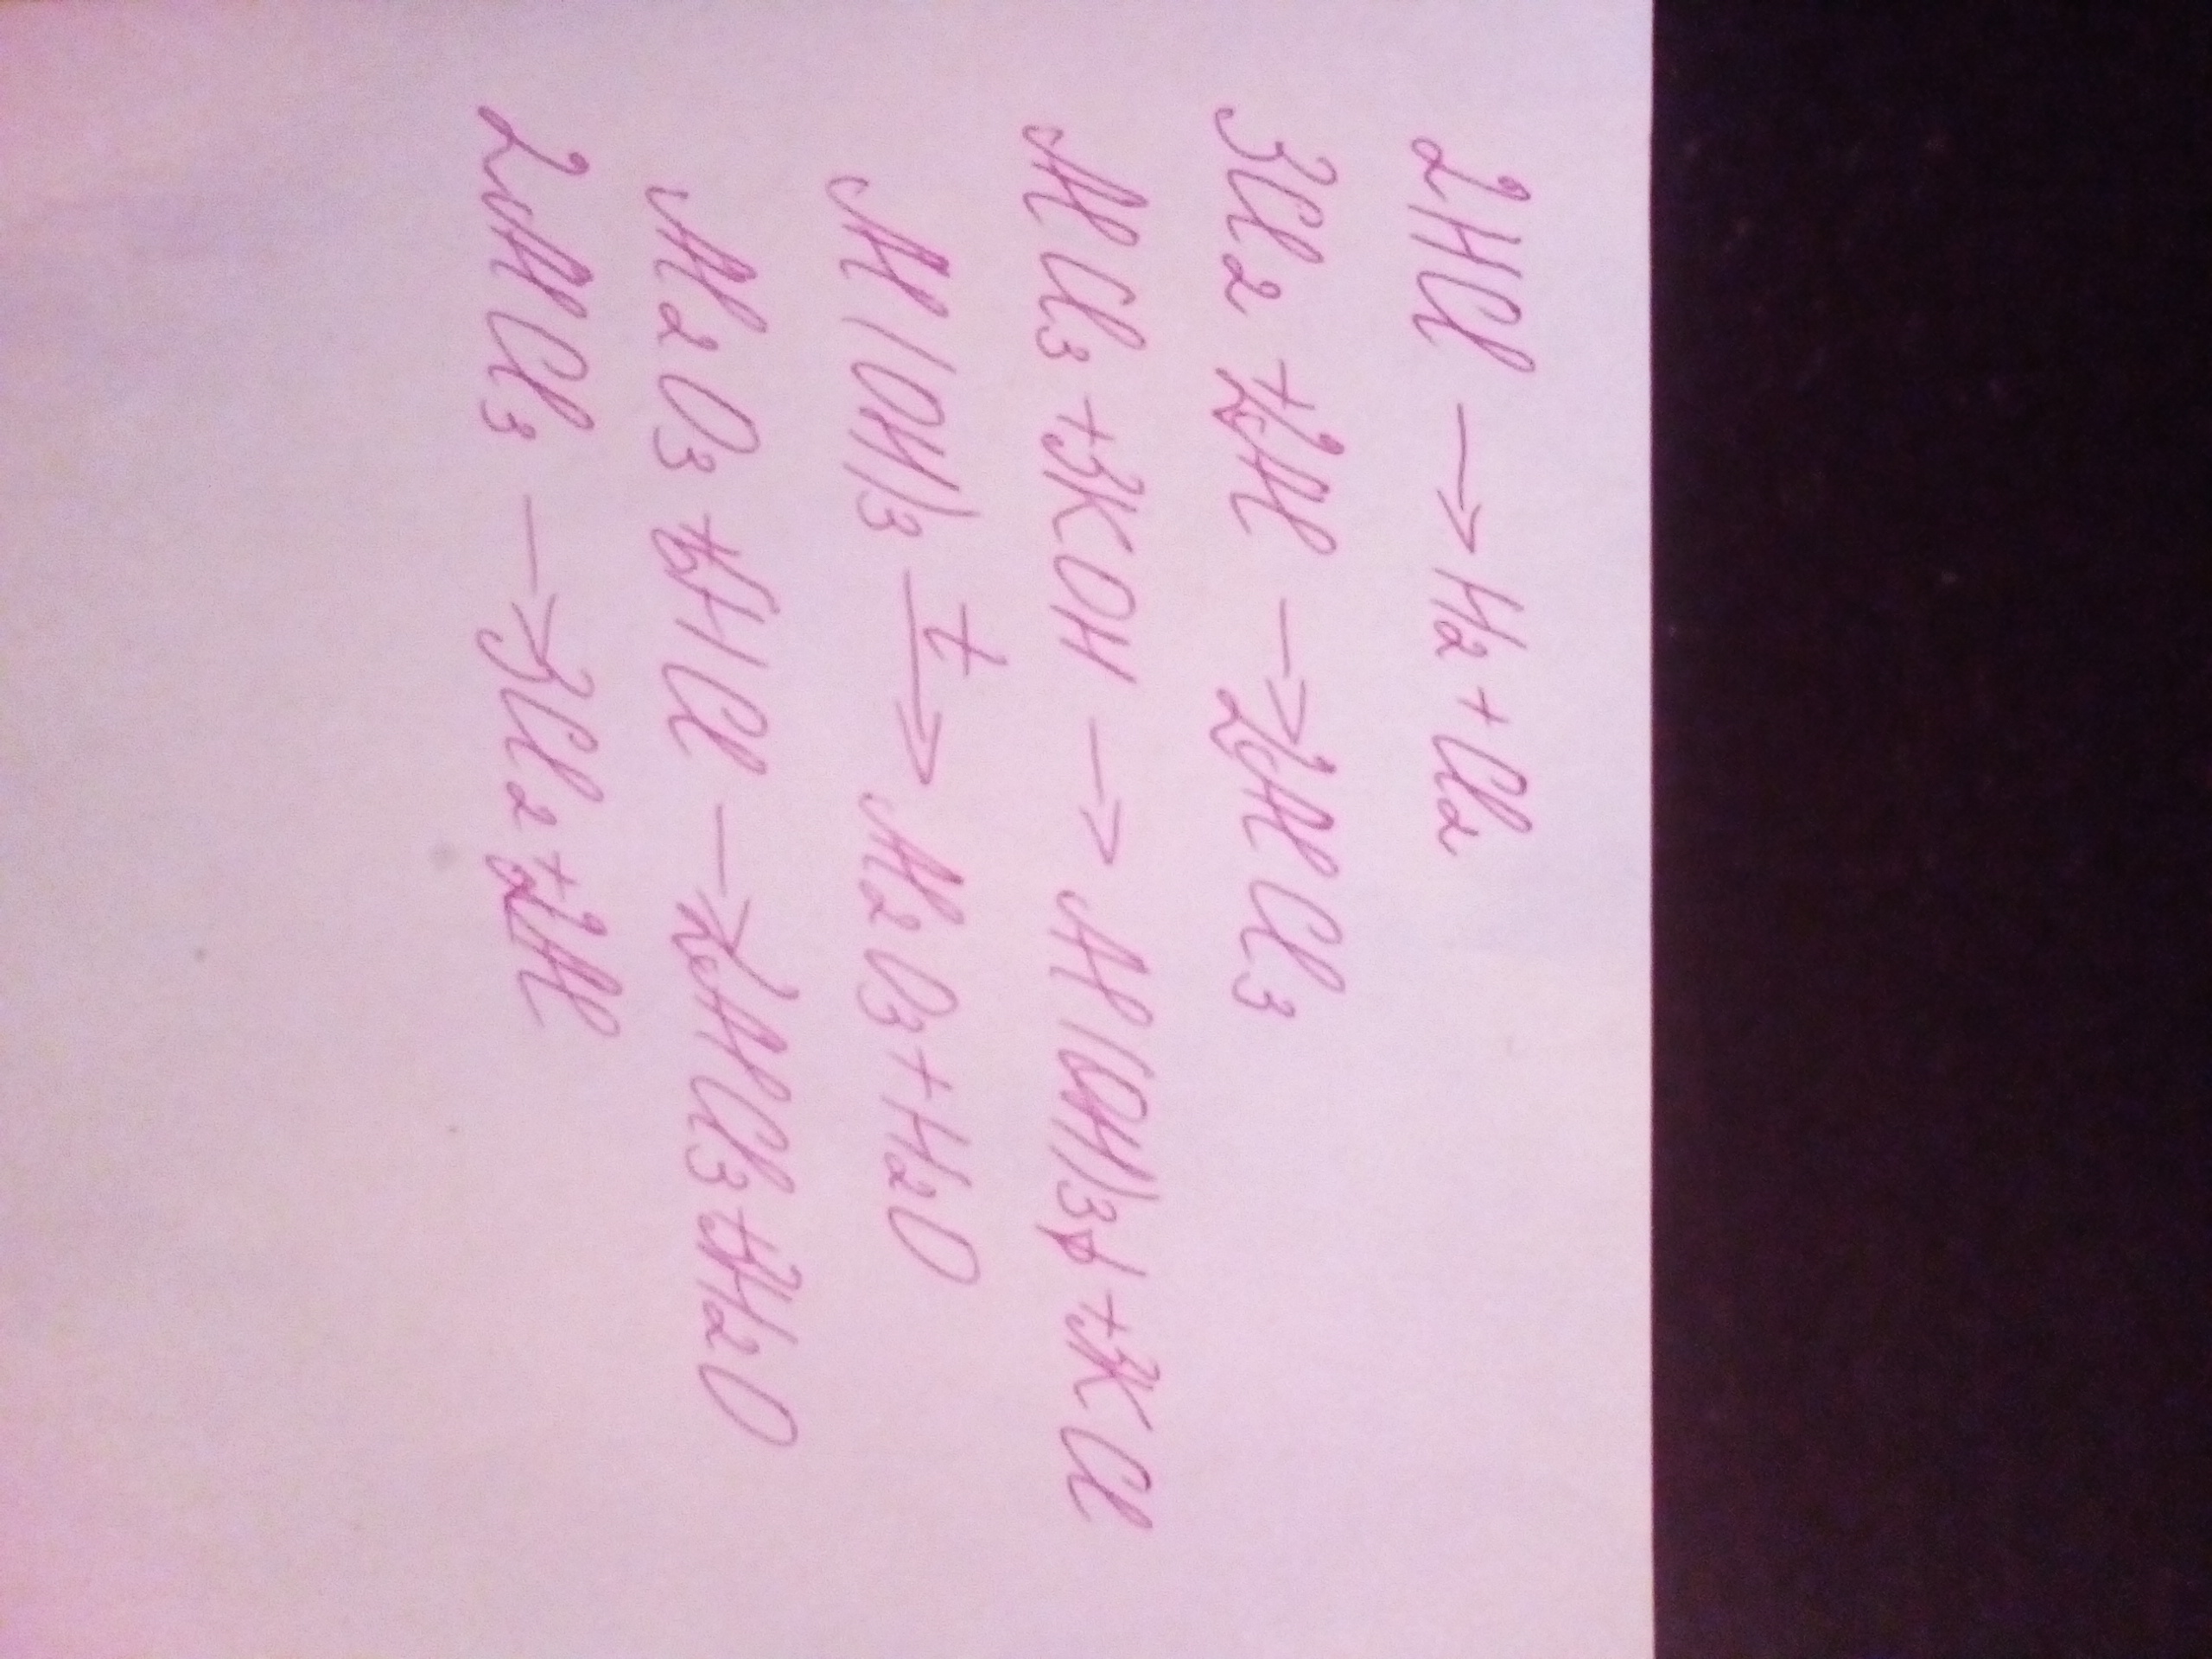 2HCl → H₂ + Cl₂
3Cl₂ + 2Al → 2AlCl₃
AlCl₃ + 3KOH → Al(OH)₃↓ + 3KCl
Al(OH)₃ t→ Al₂O₃ + H₂O
Al₂O₃ + 6HCl → 2AlCl₃ + 3H₂O
2AlCl₃ → 3Cl₂ + 2Al